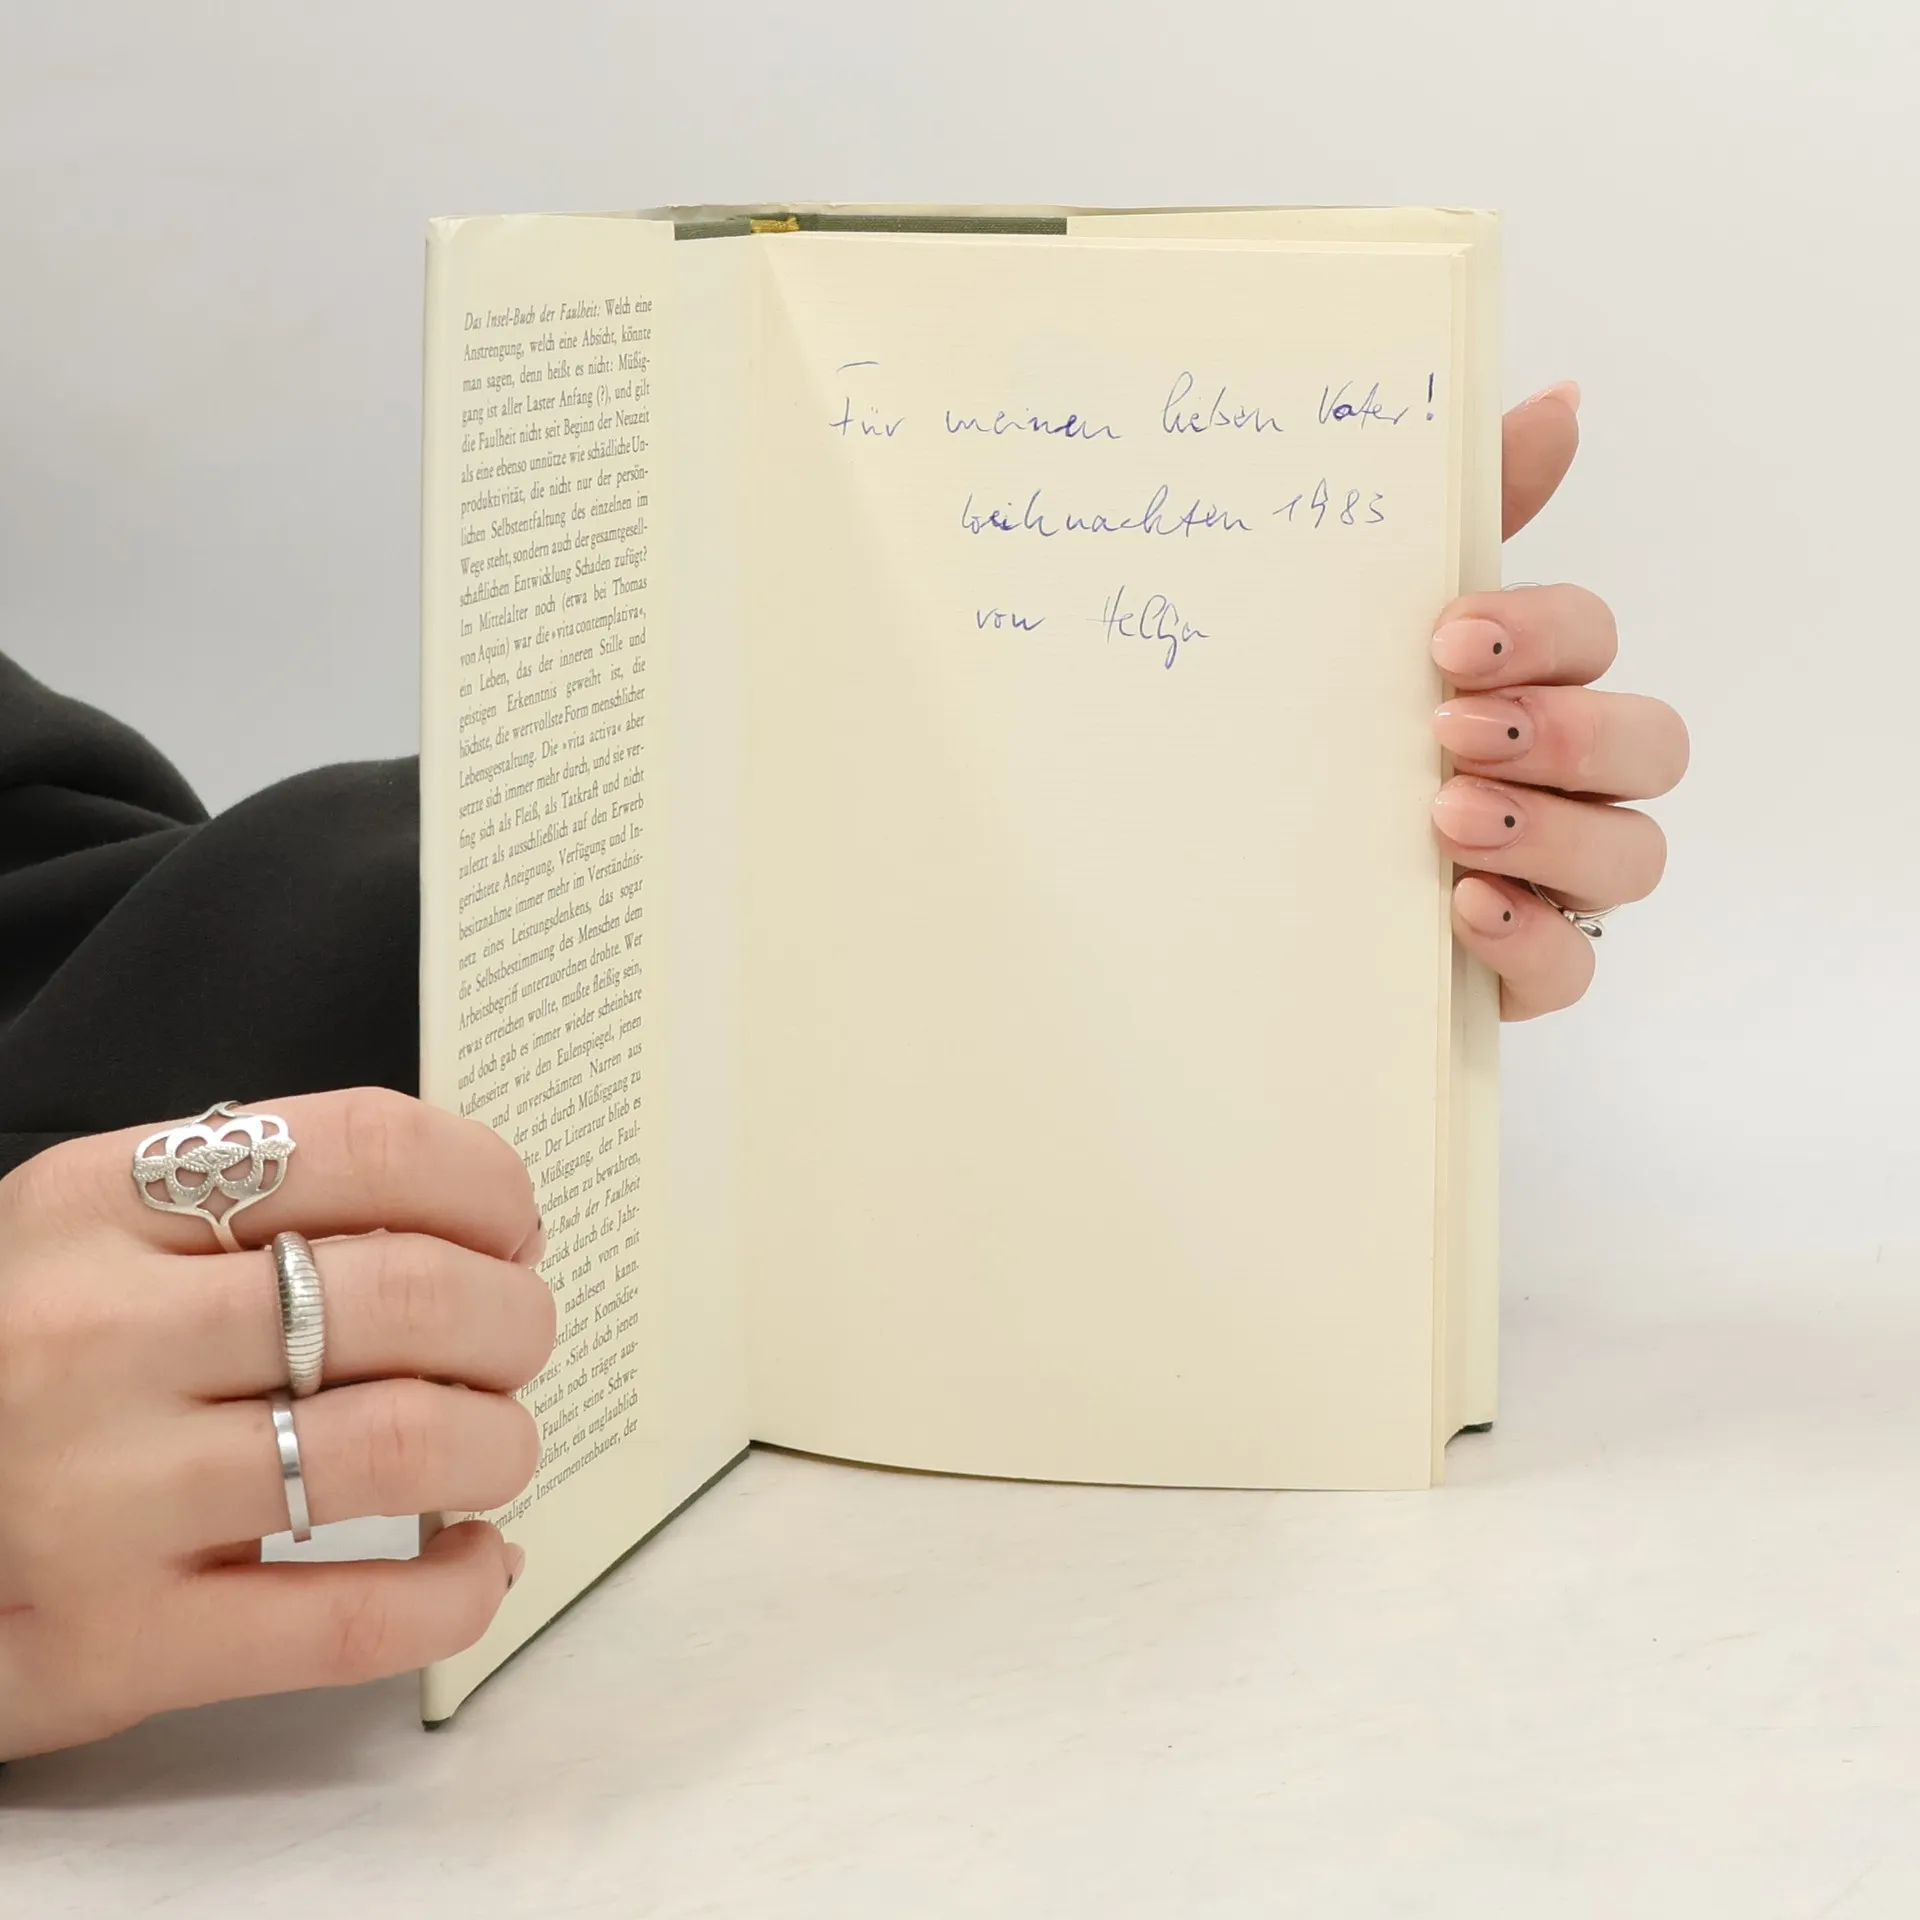 Das Insel-Buch der Faulheit: Welch eine
Anstrengung, welch eine Absicht, könnte
man sagen, denn heißt es nicht: Müßig-
gang ist aller Laster Anfang (?), und gilt
die Faulheit nicht seit Beginn der Neuzeit
als eine ebenso unnütze wie schädliche Un-
produktivität, die nicht nur der persön-
lichen Selbstentfaltung des einzelnen im
Wege steht, sondern auch der gesamtgesell-
schaftlichen Entwicklung Schaden zufügt?
Im Mittelalter noch (etwa bei Thomas
von Aquin) war die »vita contemplativa«,
ein Leben, das der inneren Stille und
geistigen Erkenntnis geweiht ist, die
höchste, die wertvollste Form menschlicher
Lebensgestaltung. Die »vita activa« aber
setzte sich immer mehr durch, und sie ver-
fing sich als Fleiß, als Tatkraft und nicht
zuletzt als ausschließlich auf den Erwerb
gerichtete Aneignung, Verfügung und In-
besitznahme immer mehr im Verständnis-
netz eines Leistungsdenkens, das sogar
die Selbstbestimmung des Menschen dem
Arbeitsbegriff unterzuordnen drohte. Wer
etwas erreichen wollte, mußte fleißig sein,
und doch gab es immer wieder scheinbare
Außenseiter wie den Eulenspiegel, jenen
und unverschämten Narren aus
der sich durch Müßiggang zu
hte. Der Literatur blieb es
Müßiggang, der Faul-
ndenken zu bewahren,
el-Buch der Faulheit
zurück durch die Jahr-
lick nach vorn mit
nachlesen kann.
ttlicher Komödie«
Hinweis: »Sieh doch jenen
beinah noch träger aus-
Faulheit seine Schwe-
geführt, ein unglaublich
emaliger Instrumentenbauer, der
Für meinen lieben Vater!
Weihnachten 1983
von Helga